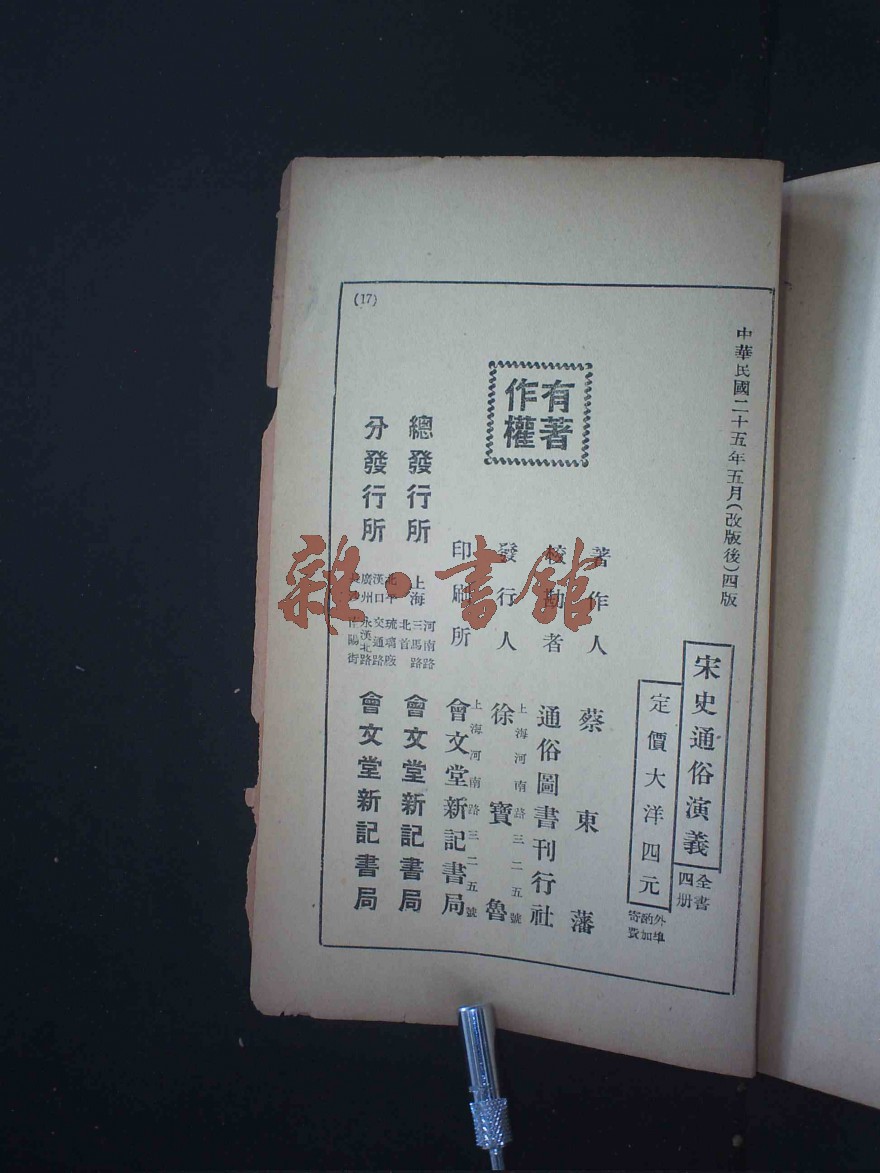 中華民國二十五年五月(改版後)四版
宋史通俗演義
全書
四册
定價大洋四元
外埠
酌加
寄費
有著
作權
著作人 蔡東藩
校勘者 通俗圖書刊行社
發行人 徐寶魯
上海河南路三二五號
印刷所 會文堂新記書局
上海河南路三二五號
總發行所 上海 河南路 三馬路 北首 會文堂新記書局
分發行所
北平 琉璃廠
漢口 交通路
廣州 永漢北路
會文堂新記書局
(17)
雜·書館